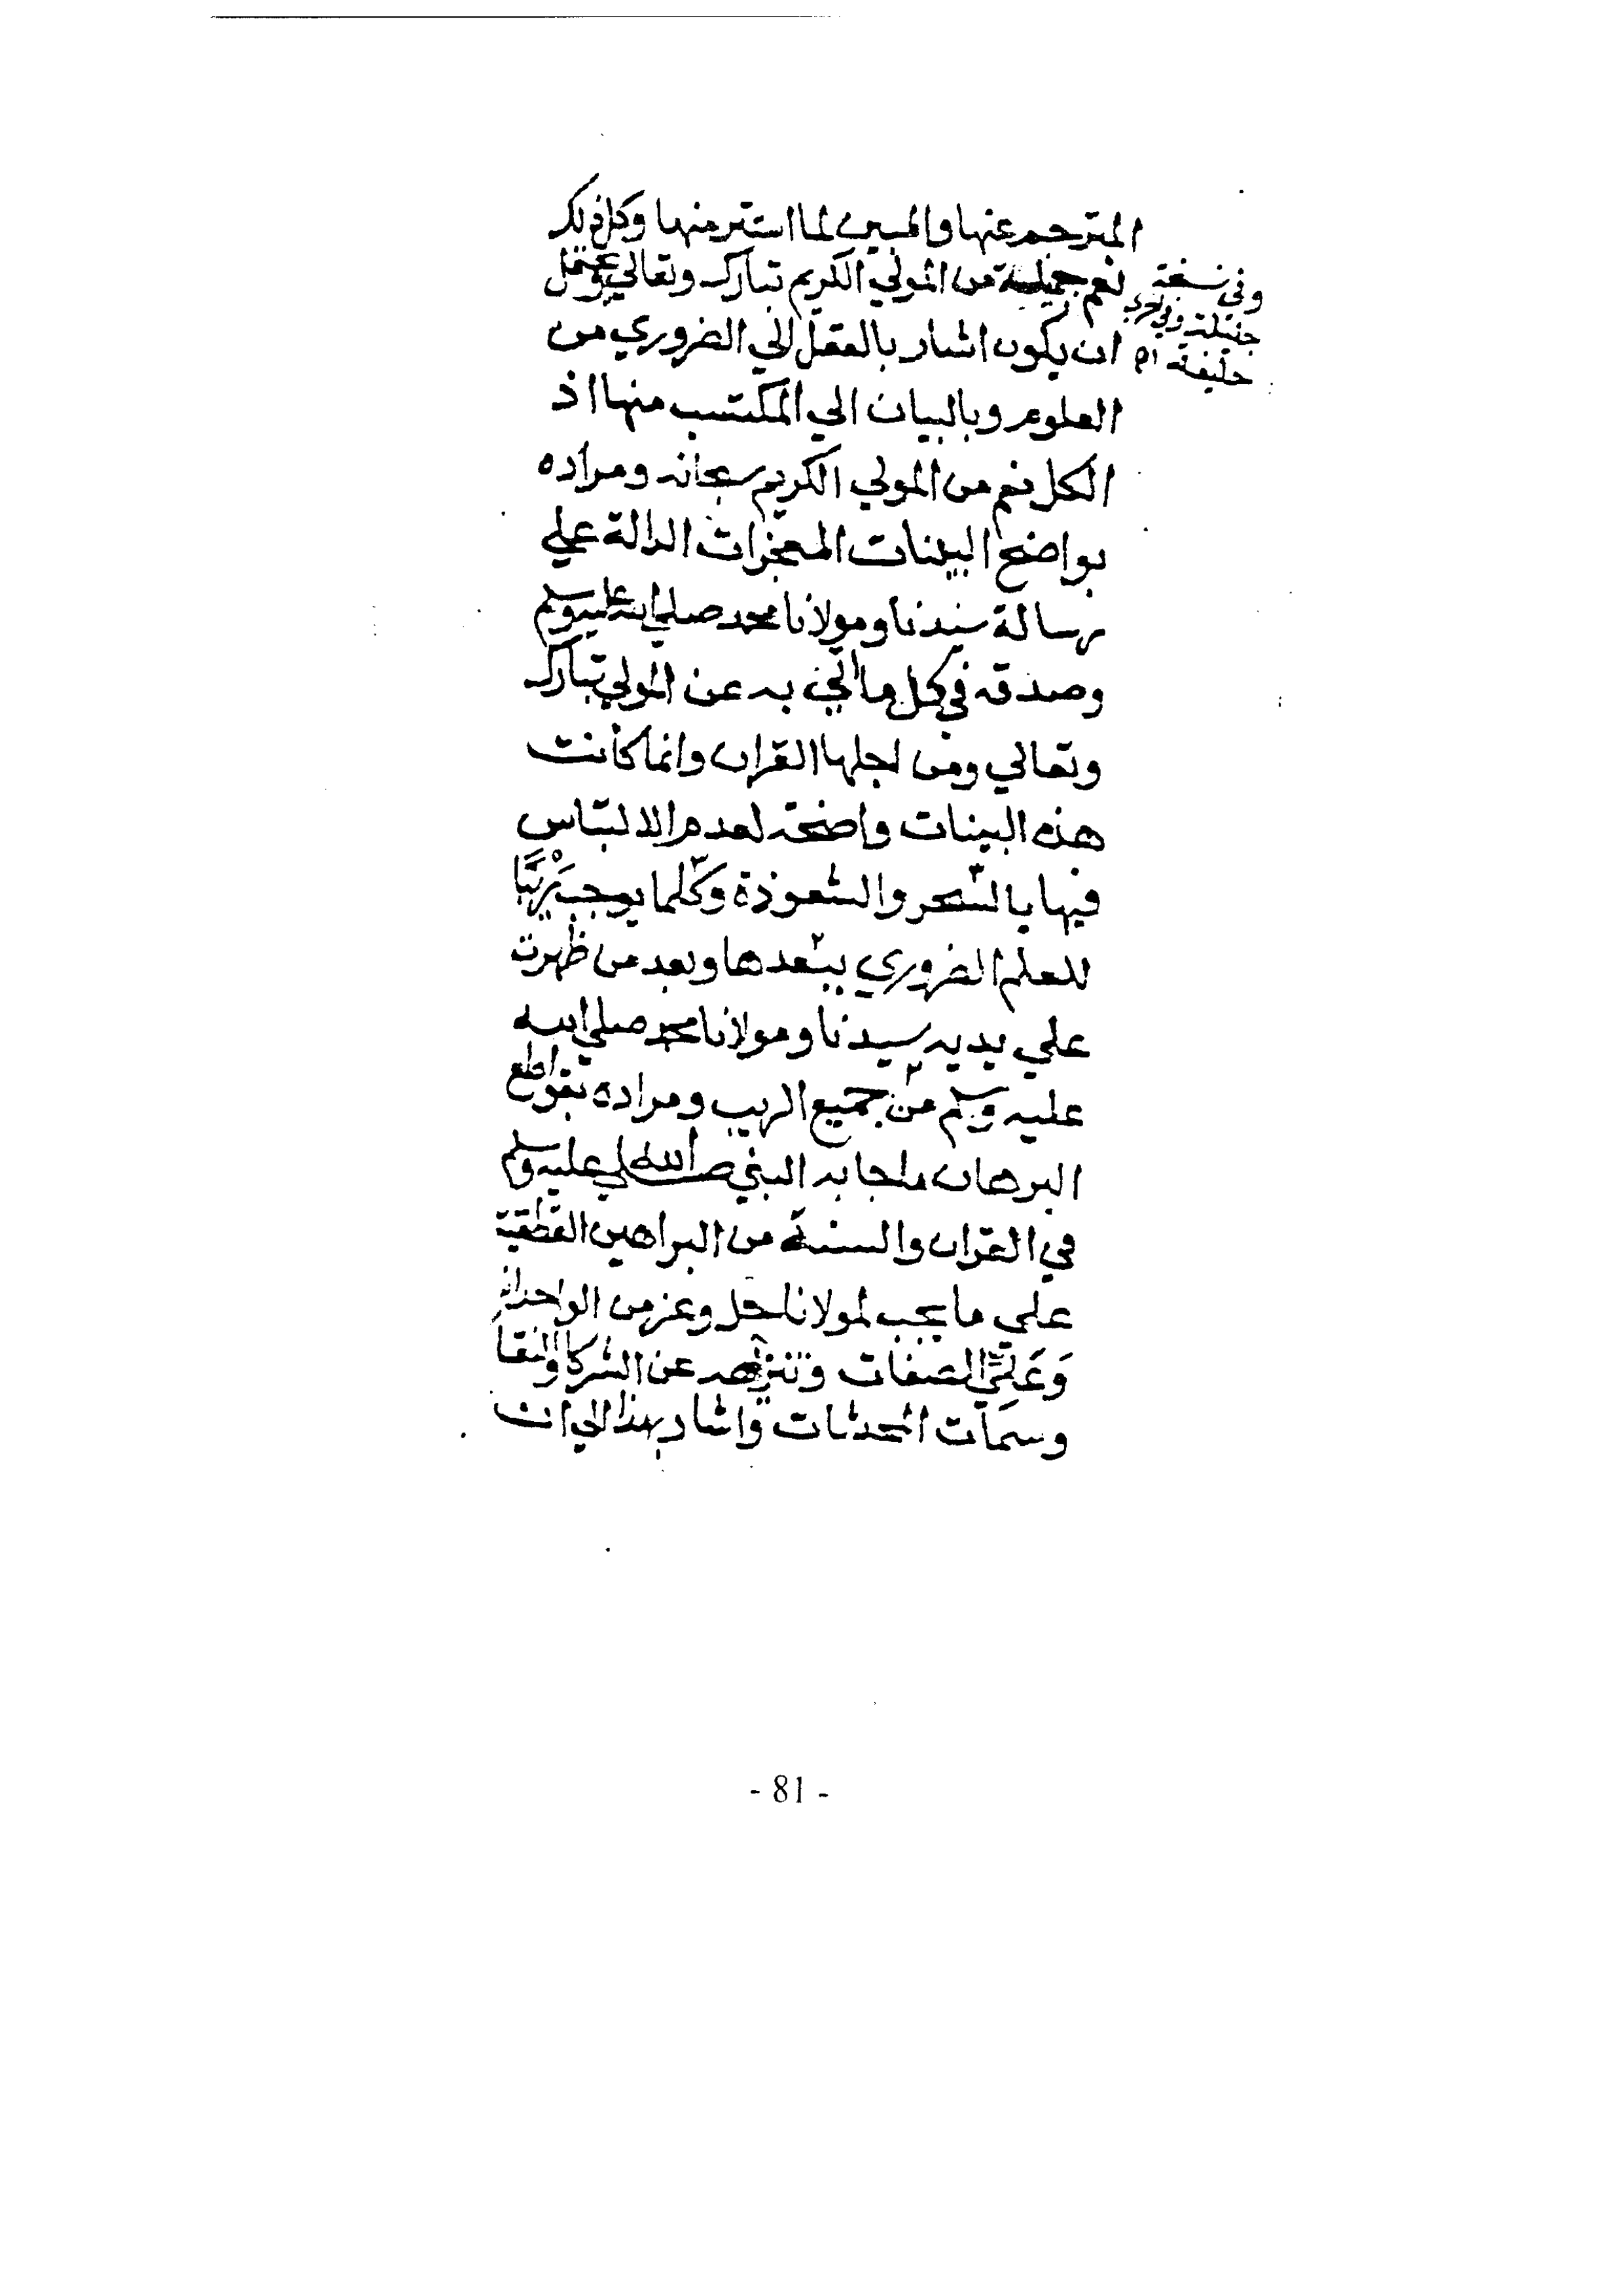 المترجم عنها والمبين لما استتر منها وكل ذلك
نعم جميلة من المولي الكريم تبارك وتعالي ويحتمل
وفي نسخة
جليلة وفي اخري
خليفة اه
ان يكون اشار بالعقل الي الضروري من
العلوم وبالبيان الي المكتسب منها اذ
الكل نعم من المولي الكريم سبحانه ومراده
بواضح البينات المعجزات الدالة علي
رسالة سيدنا ومولانا محمد صلي الله عليه وسلم
وصدقه في كل ما اتي به عن المولي تبارك
وتعالي ومن اجلها القران وانما كانت
هذه البينات واضحة لعدم الالتباس
فيها بالسحر والشعوذة وكلما يوجب ريبا
للعلم الضروري ببعدها وبعد من ظهرت
علي يديه سيدنا ومولانا محمد صلي الله
عليه وسلم من جميع الريب ومراده بقواطع
البرهان ما جا به النبي صلي الله عليه وسلم
في القران والسنة من البراهين القطعية
علي ما يجب لمولانا جل وعز من الواحدانية
وَعَلِيِّ الصفات وتنزهه عن الشركا والنقا
وسمات المحدثات واشار بهذا الي ان
- 81 -